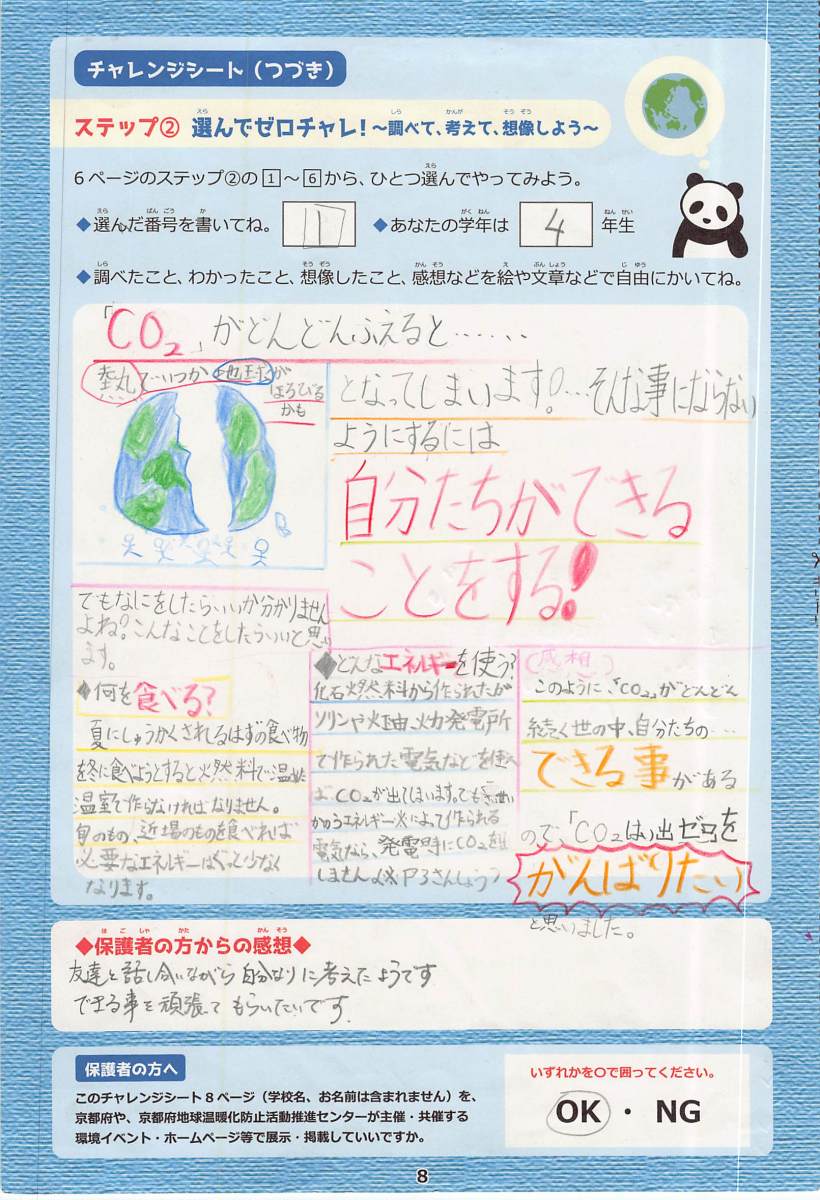 チャレンジシート（つづき）
ステップ② 選んでゼロチャレ！～調べて、考えて、想像しよう～
6ページのステップ②の1～6から、ひとつ選んでやってみよう。
◆選んだ番号を書いてね。 1 ◆あなたの学年は 4 年生
◆調べたこと、わかったこと、想像したこと、感想などを絵や文章などで自由にかいてね。
「CO₂」がどんどんふえると……
熱でいつか地球が
ほろびる
かも
となってしまいます!…そんな事にならない
ようにするには
自分たちができる
ことをする!
でもなにをしたらいいか分かりません
よね?こんなことをしたらいいと思い
ます。
◆何を食べる?
夏にしゅうかくされるはずの食べ物
を冬に食べようとすると燃料で温めた
温室で作らなければなりません。
旬のもの、近場のものを食べれば
必要なエネルギーはぐっと少なく
なります。
◆どんなエネルギーを使う?
化石燃料から作られたガ
ソリンや灯油、火力発電所
で作られた電気などを使え
ば、CO₂が出てしまいます。でも
エネルギー※によって作られる
電気なら、発電時にCO₂を出
しません(※P3さんしょう)
(感想)
このように、「CO₂」がどんどん
続く世の中、自分たちの…
できる事がある
ので、「CO₂はい出ゼロ」を
がんばりたい
と思いました。
◆保護者の方からの感想◆
友達と話し合いながら自分なりに考えたようです
できる事を頑張ってもらいたいです。
保護者の方へ
このチャレンジシート8ページ（学校名、お名前は含まれません）を、
京都府や、京都府地球温暖化防止活動推進センターが主催・共催する
環境イベント・ホームページ等で展示・掲載していいですか。
いずれかを○で囲ってください。
OK ・ NG
8